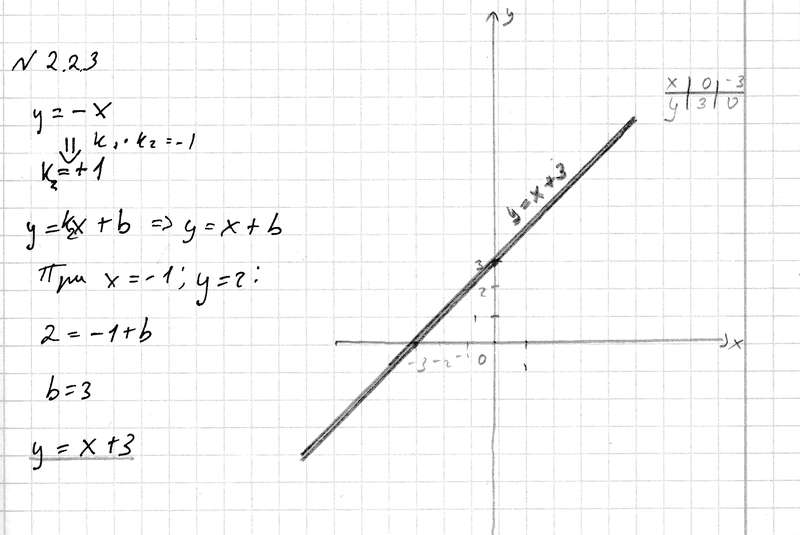 N 2.2.3
y = - x
⇓ k₁ · k₂ = -1
k₂ = + 1
y = k₂x + b ⇒ y = x + b
При x = -1; y = 2:
2 = -1 + b
b = 3
y = x + 3
y
x | 0 | -3
y | 3 | 0
y = x + 3
3
2
1
-3 -2 -1 0 1 x